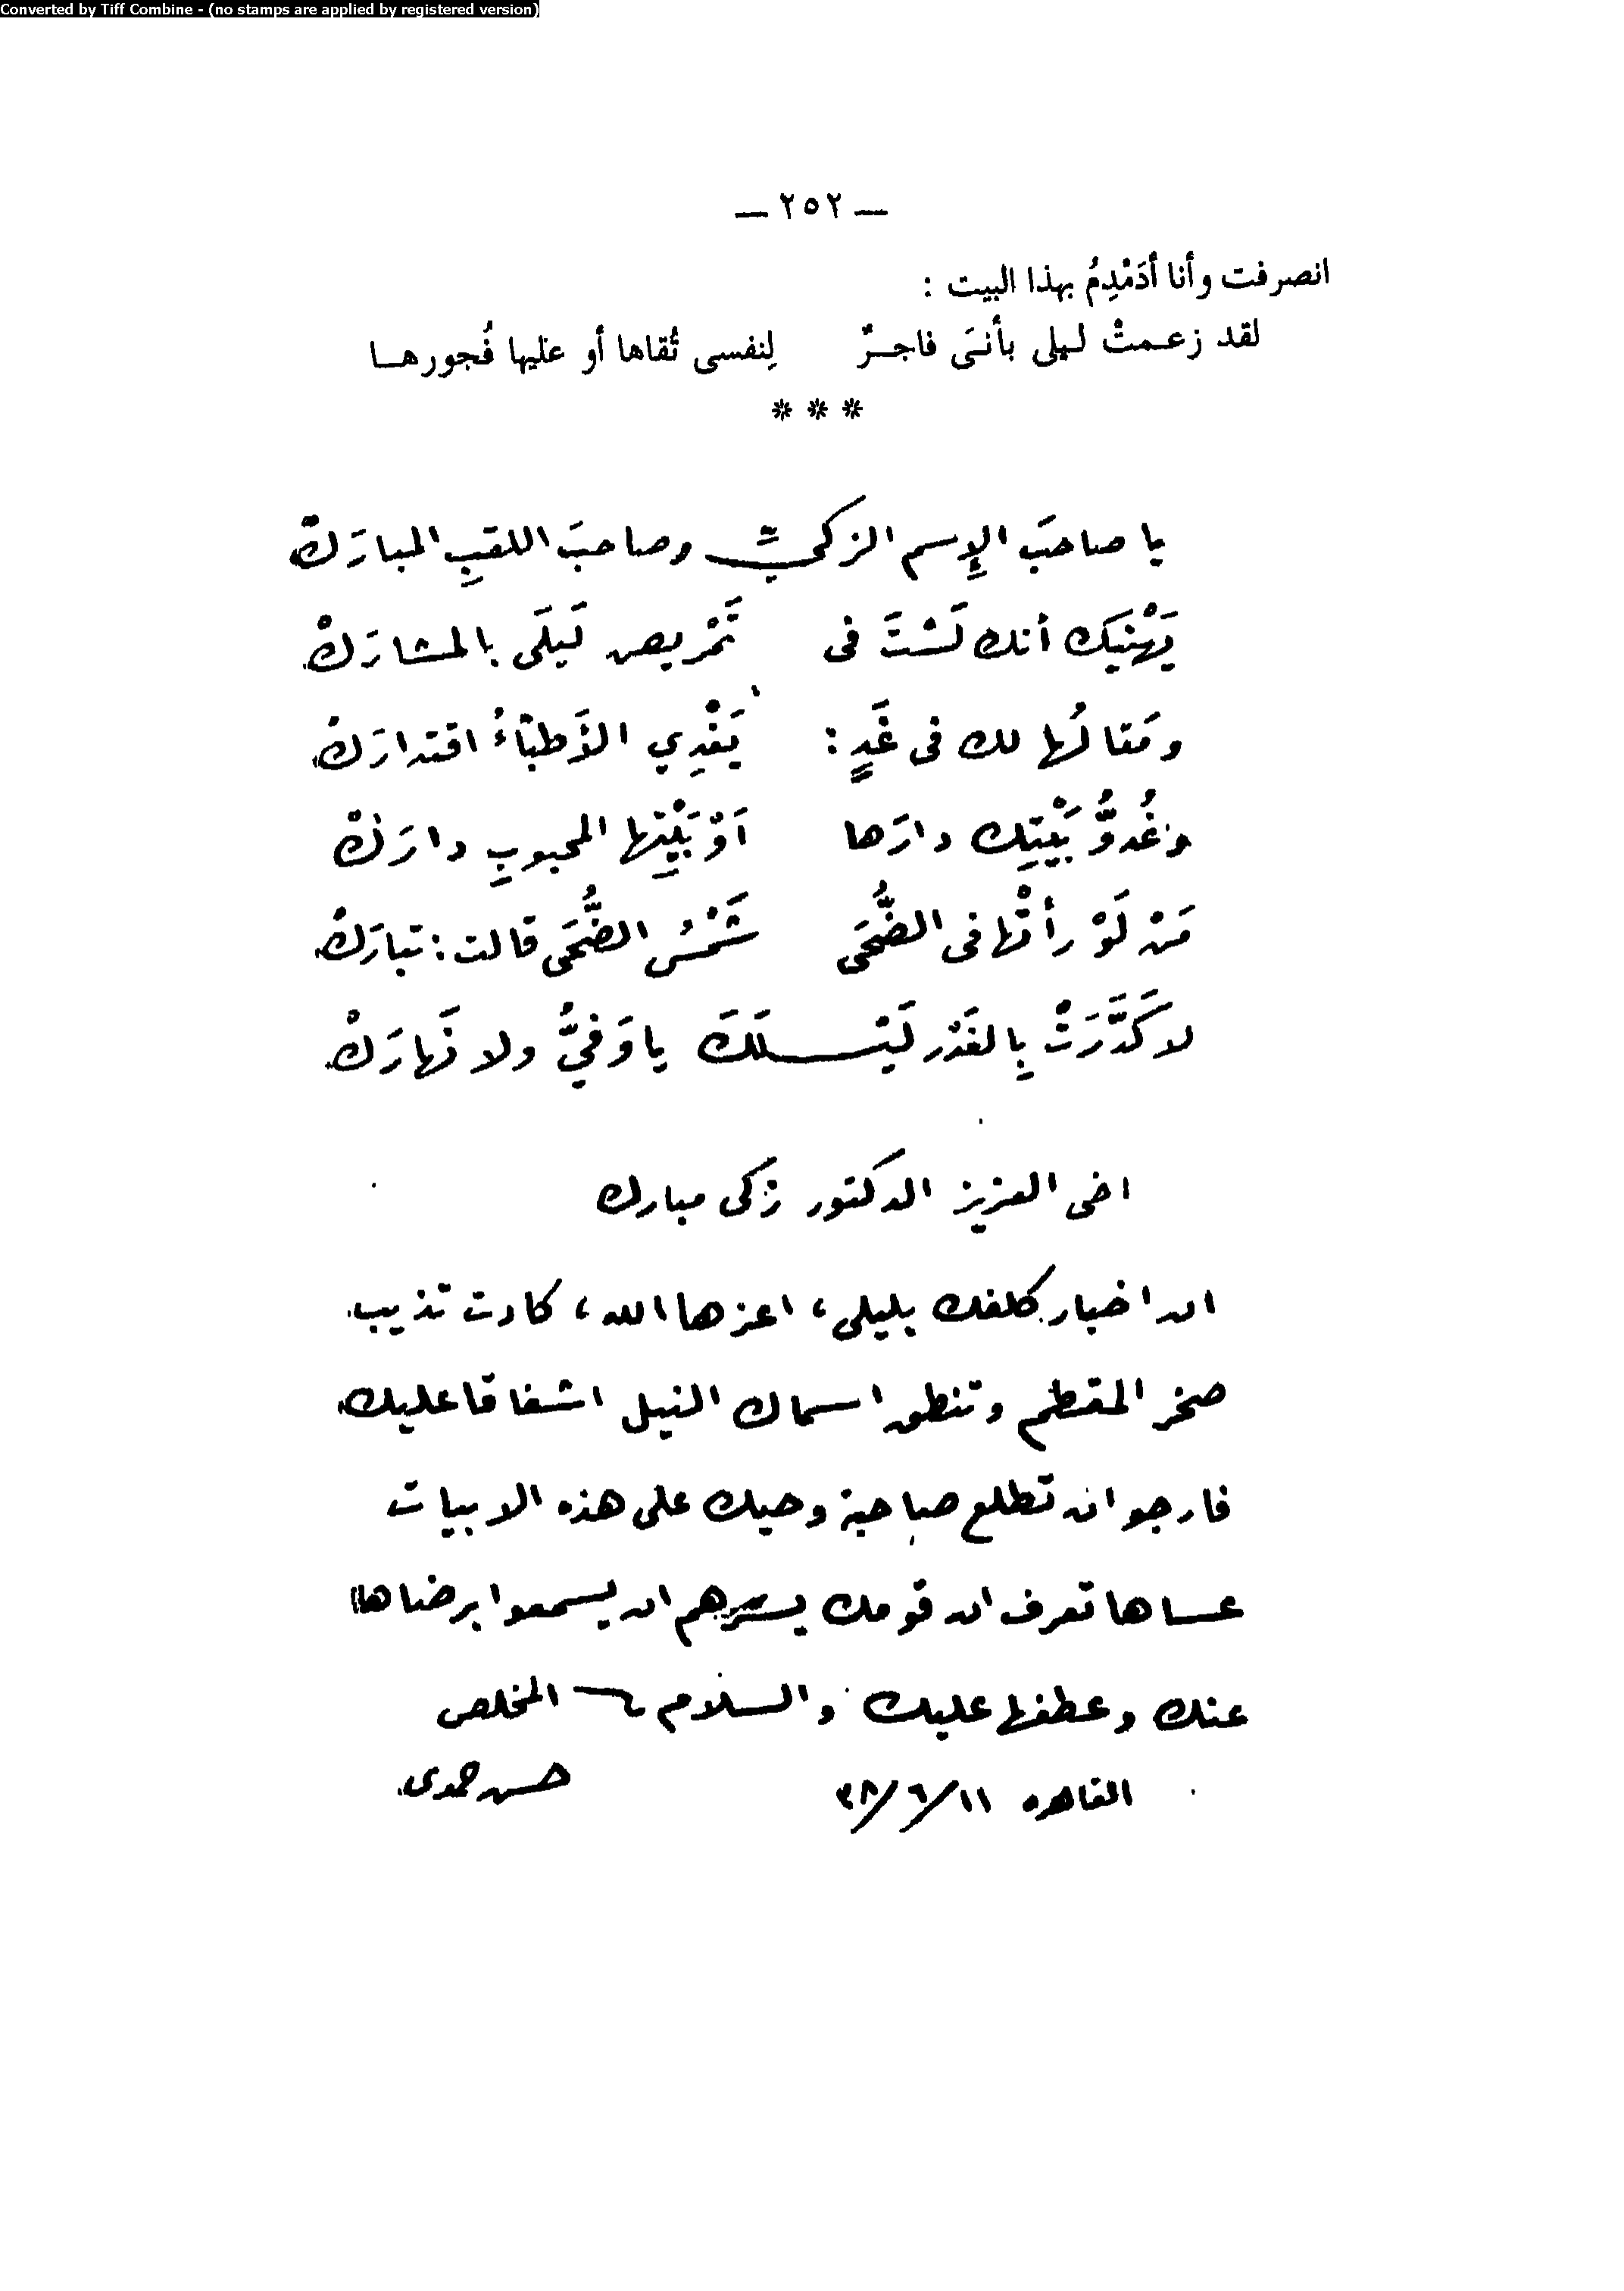 Converted by Tiff Combine - (no stamps are applied by registered version)
— ٢٥٢ —
انصرفت وأنا أدَمْدِمُ بهذا البيت :
لقد زعـمتْ ليلى بأنىَ فاجـرٌ لِنفسى تُقاها أو عليها فُجورهـا
* * *
يا صاحبَ الإِسم الزكيّ وصاحبَ اللقبِ المبارَكْ
يَهْنيَك أنك لَسْتَ فى تَمْريض لَيلَى بالمشارَكْ
ومَقالُها لك فى غَدٍ : يَفْدِي الأَطبّاءُ اقتدارَكْ
وغُدوُّ بَيْتِك دارَها اَوْ بَيْتِها المحبوبِ دارَكْ
مَنْ لَوْ رأتْها فى الضُّحَى شَمْسُ الضُّحَى قالت : تبارَكْ
لا كَدَّرَتْ بِالغَدْر لَيْــلَكَ يا وَفيُّ ولا نَهارَكْ
اخى العزيز الدكتور زكى مبارك
ان اخبار كلفك بليلى ، اعزها الله ، كادت تذيب
صخر المقطم وتنطق اسماك النيل اشفاقا عليك
فارجو ان تطلع صاحبة وحيك على هذه الابيات
عساها تعرف ان قومك يسرّهم ان يسمعوا برضاها
عنك وعطفها عليك والسلام المخلص
القاهره ١١/٦/٣٨ حسن حمدى